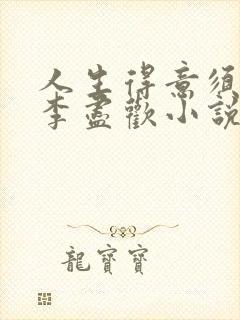 人生得意須
李盡歡小說
龍寶寶